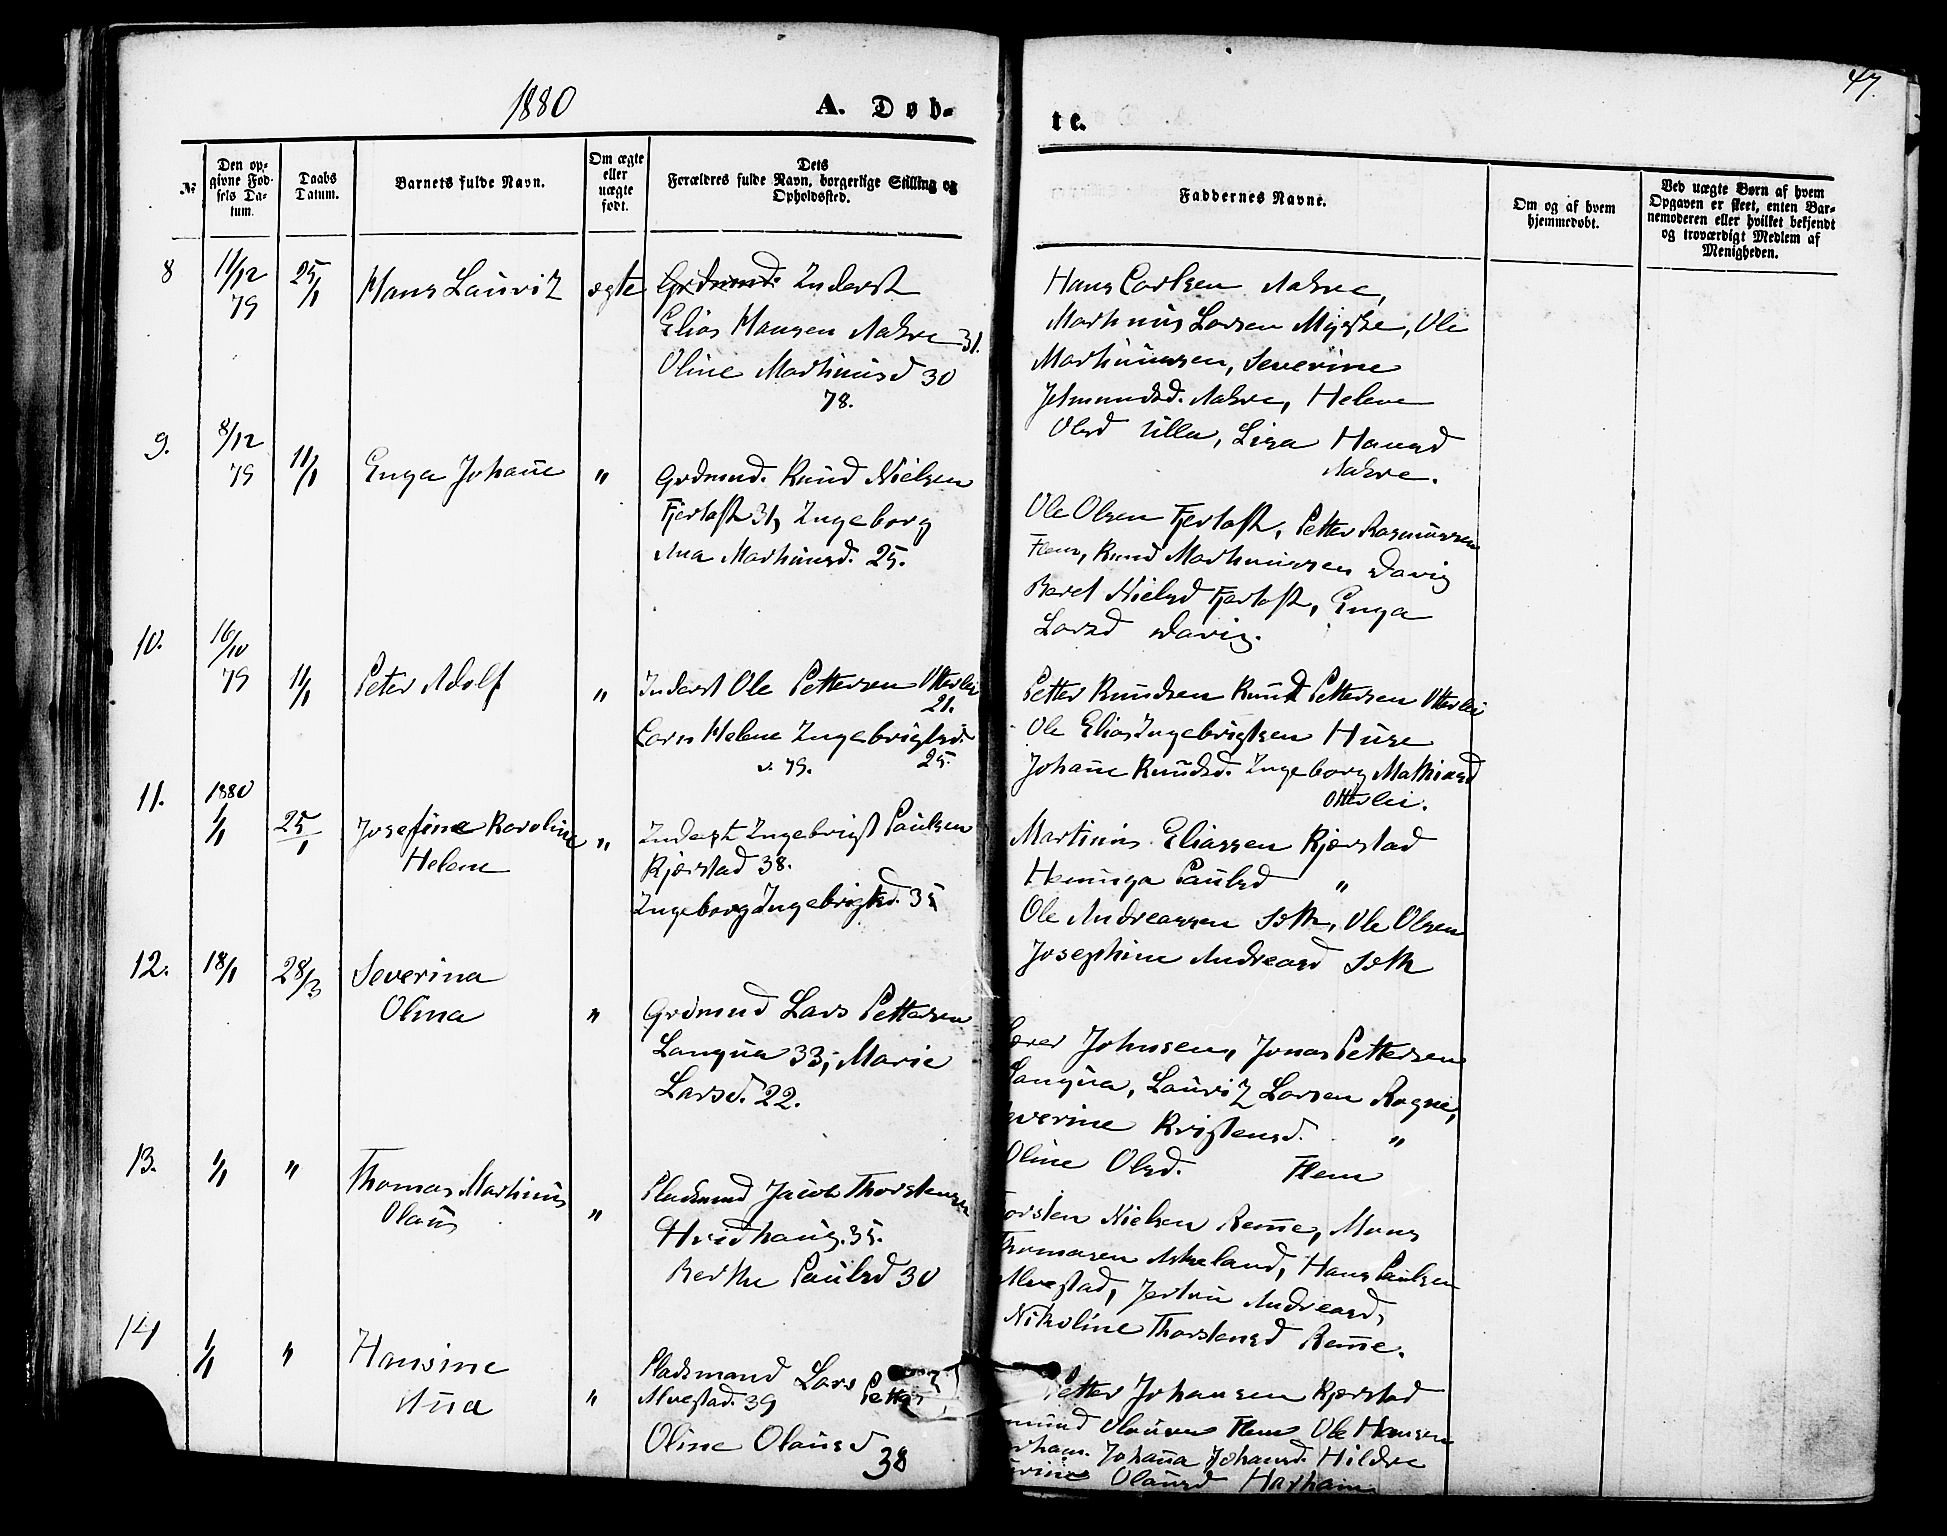 1880
A. Døb-
te.
47.
No
Den op-
givne Fød-
sels Da-
tum.
Daabs
Datum.
Barnets fulde Navn.
Om ægte
eller
uægte
født.
Dets
Forældres fulde Navn, borgerlige Stilling og
Opholdssted.
Faddernes Navne.
Om og af hvem
hjemmedøbt.
Ved uægte Børn af hvem
Opgaven er skeet, enten Bar-
nemoderen eller hvilket bekjendt
og troværdigt Medlem af
Menigheden.
8
11/12
79
25/1
Hans Lauritz
ægte
Grdmnd. Inderst
Elias Hansen Aakre 31.
Oline Mathiasd 30
78.
Hans Carlsen Aakre,
Mathias Larsen Myske, Ole
Mathiassen, Severine
Aakre, Helene
Olsd Ulla, Lisa Hansd
Aakre.
9.
8/12
79
11/1
Enga Johane
"
Grdmnd. Knud Nielsen
Fjertoft 31, Ingeborg
Ana Mathiasd. 25.
Ole Olsen Fjertoft, Petter Rasmussen
Flem, Knud Mathiassen
Beret Nielsd Fjertoft, Enga
Larsd
10.
16/10
79
11/1
Peter Adolf
"
Inderst Ole Pettersen Otterlei
21.
Caren Helene Ingebrigtsd.
v. 79. 25.
Petter Knudsen Knud Pettersen Otterlei
Ole Elias Ingebrigtsen Huse
Johane Knudsd. Ingeborg Mathiasd
Otterlei.
11.
1880
1/1
25/1
Josefine Karoline
Helene
"
Inderst Ingebrigt Paulsen
Kjærstad 38.
Ingeborg Ingebrigtsd. 35
Martinus Eliassen Kjærstad
Heminga Paulsd "
Ole Andreassen Søth, Ole Olsen
Josephine Andreasd Søth
12.
18/1
28/3
Severina
Olina
"
Grdmnd Lars Pettersen
Longva 33, Marie
Larsd. 22.
Johnsen, Jonas Pettersen
Longva, Lauritz Larsen Rogne,
Severine Kristensd. "
Oline Olsd. Flem
13.
1/1
"
Thomas Mathias
Olaus
"
Pladsmnd Jacob Thorstensen
Hvidhaug. 35.
Berthe Paulsd 30
Torsten Nielsen Rønne, Mons
Thomasen Askeland, Hans Paulsen
Alvestad, Jertru Andreasd,
Nikoline Thorstensd Rønne.
14
1/1
"
Hansine
Ana
"
Pladsmand Lars Petters
Alvestad. 39
Oline Olausd
38
Petter Johansen Kjærstad
Olausen Flem Ole Hansen
Johana Johansd. Hildre
Olausd Harham